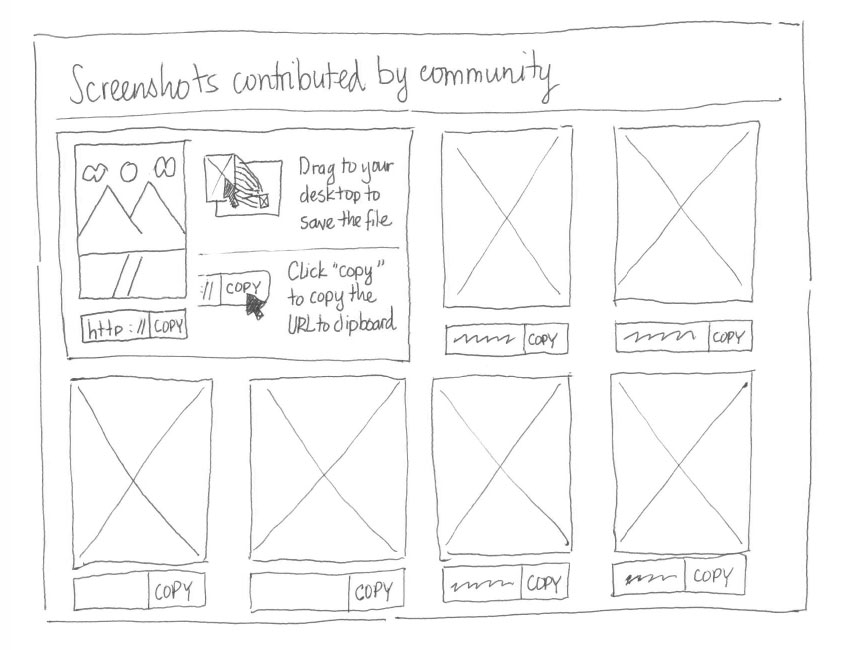 Screenshots contributed by community
Drag to your
desktop to
save the file
Click "copy"
to copy the
URL to clipboard
:// COPY
http :// COPY
COPY
COPY
COPY
COPY
COPY
COPY